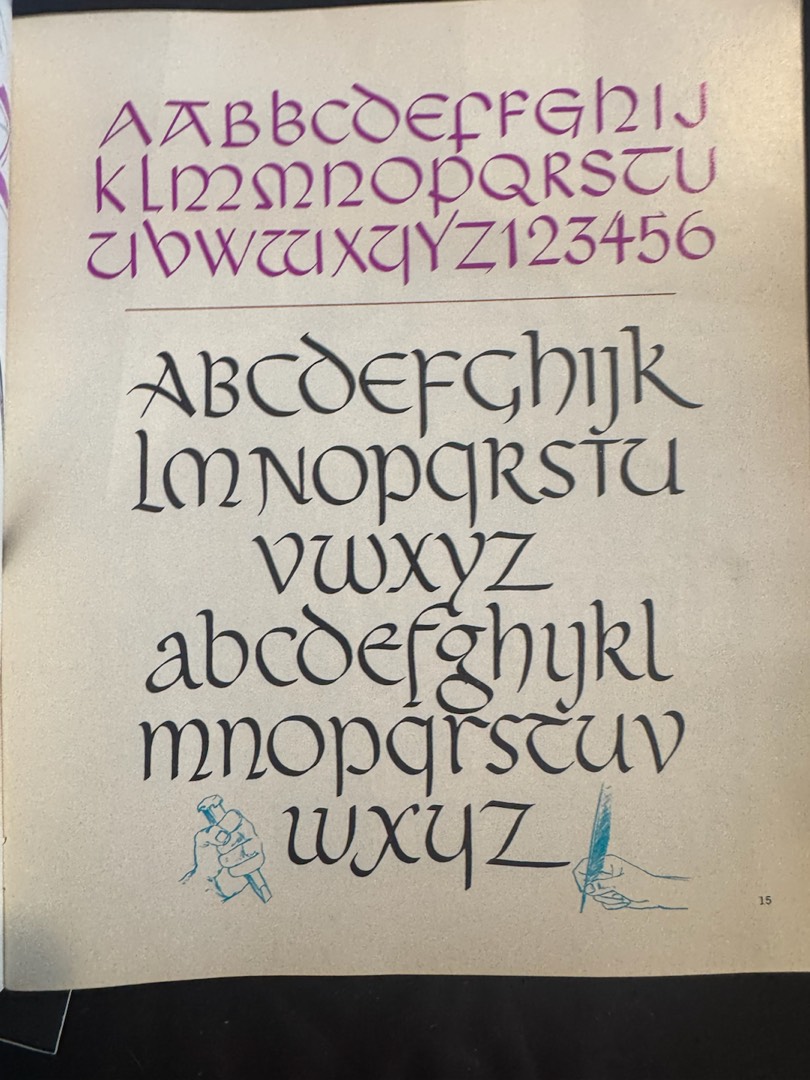 AABBCDEEFFGHIJ
KLMMNOPQRSTU
UVWWXYYZ123456
ABCDEFGhijk
LMNOPQRSTU
VWXYZ
abcdefghijkl
mnopqrstuv
wxyz
15